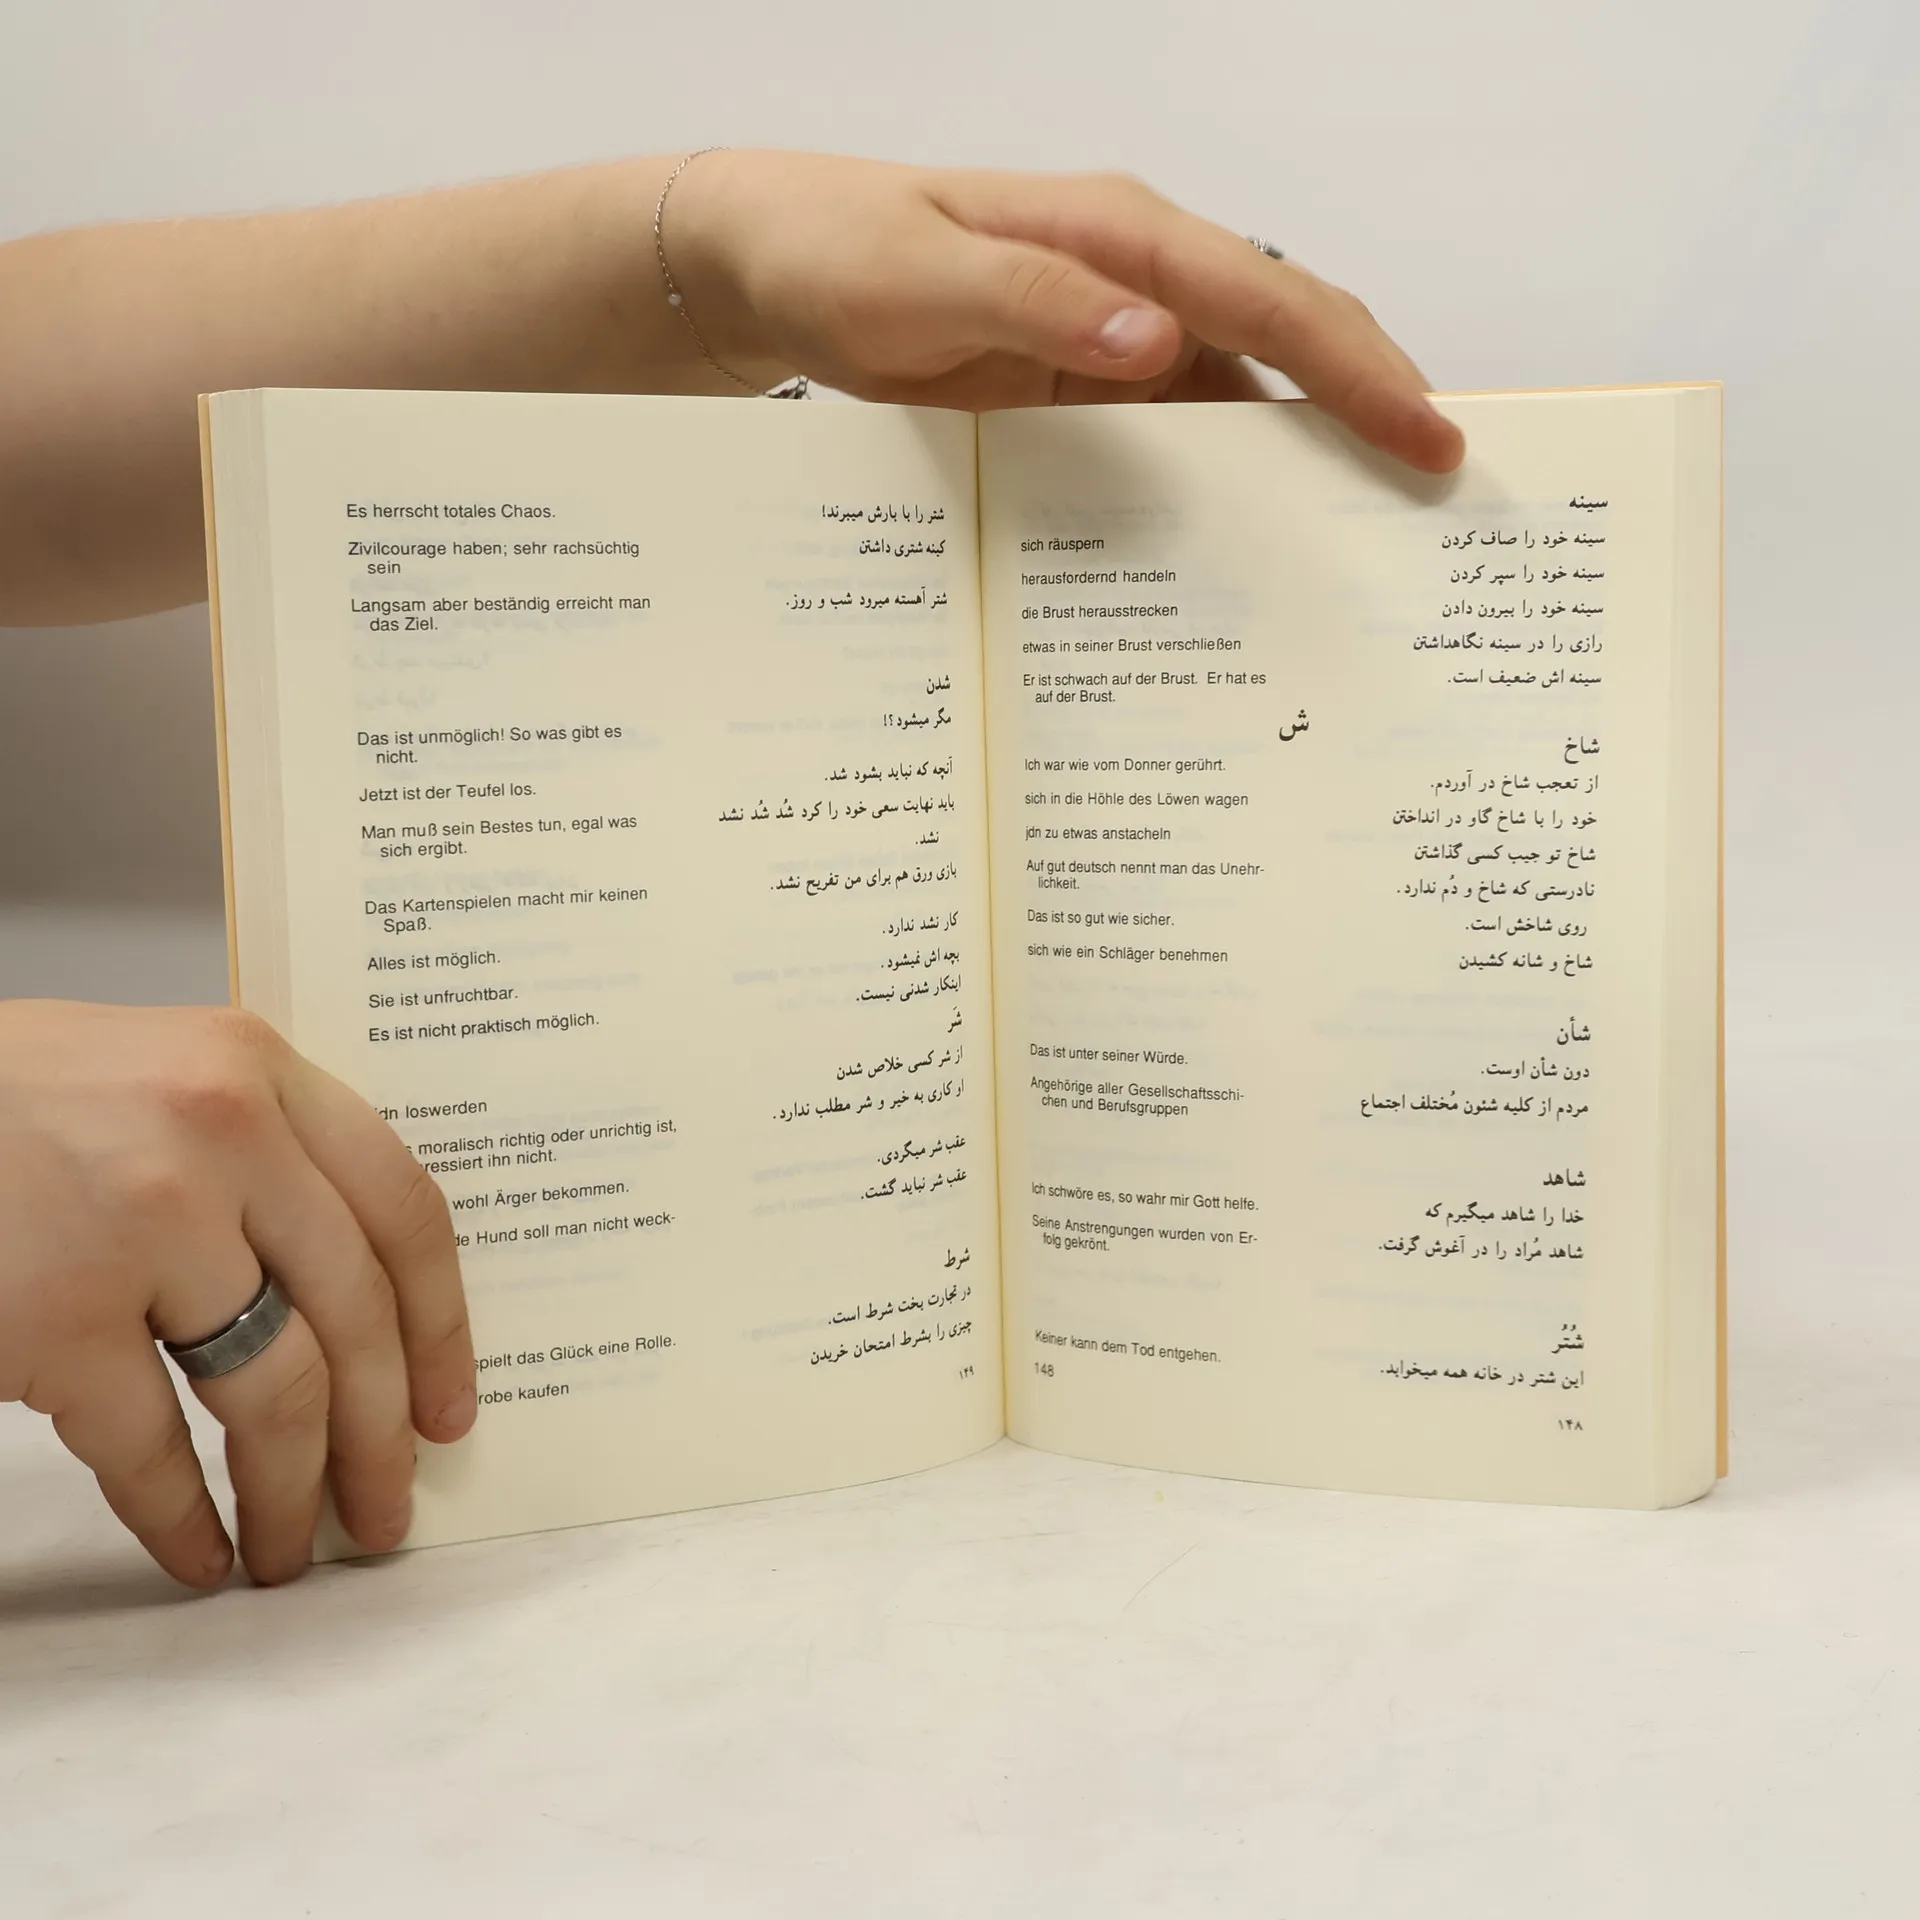 Es herrscht totales Chaos.
شتر را با بارش میبرند!
Zivilcourage haben; sehr rachsüchtig
sein
کینه شتری داشتن
Langsam aber beständig erreicht man
das Ziel.
شتر آهسته میرود شب و روز.
شدن
Das ist unmöglich! So was gibt es
nicht.
مگر میشود؟!
Jetzt ist der Teufel los.
آنچه که نباید بشود شد.
Man muß sein Bestes tun, egal was
sich ergibt.
باید نهایت سعی خود را کرد شُد شُد نشد
نشد.
Das Kartenspielen macht mir keinen
Spaß.
بازی ورق هم برای من تفریح نشد.
Alles ist möglich.
کار نشد ندارد.
Sie ist unfruchtbar.
بچه اش نمیشود.
Es ist nicht praktisch möglich.
اینکار شدنی نیست.
شَر
jdn loswerden
از شر کسی خلاص شدن
moralisch richtig oder unrichtig ist,
ressiert ihn nicht.
او کاری به خیر و شر مطلب ندارد.
wohl Ärger bekommen.
عقب شر میگردی.
de Hund soll man nicht weck-
عقب شر نباید گشت.
شرط
spielt das Glück eine Rolle.
در تجارت بخت شرط است.
robe kaufen
چیزی را بشرط امتحان خریدن
۱۴۹
سینه
sich räuspern
سینه خود را صاف کردن
herausfordernd handeln
سینه خود را سپر کردن
die Brust herausstrecken
سینه خود را بیرون دادن
etwas in seiner Brust verschließen
رازی را در سینه نگاهداشتن
Er ist schwach auf der Brust. Er hat es
auf der Brust.
سینه اش ضعیف است.
ش
شاخ
Ich war wie vom Donner gerührt.
از تعجب شاخ در آوردم.
sich in die Höhle des Löwen wagen
خود را با شاخ گاو در انداختن
jdn zu etwas anstacheln
شاخ تو جیب کسی گذاشتن
Auf gut deutsch nennt man das Unehr-
lichkeit.
نادرستی که شاخ و دُم ندارد.
Das ist so gut wie sicher.
روی شاخش است.
sich wie ein Schläger benehmen
شاخ و شانه کشیدن
شأن
Das ist unter seiner Würde.
دون شأن اوست.
Angehörige aller Gesellschaftsschi-
chen und Berufsgruppen
مردم از کلیه شئون مُختلف اجتماع
شاهد
Ich schwöre es, so wahr mir Gott helfe.
خدا را شاهد میگیرم که
Seine Anstrengungen wurden von Er-
folg gekrönt.
شاهد مُراد را در آغوش گرفت.
شُتُر
Keiner kann dem Tod entgehen.
این شتر در خانه همه میخوابد.
148
۱۴۸